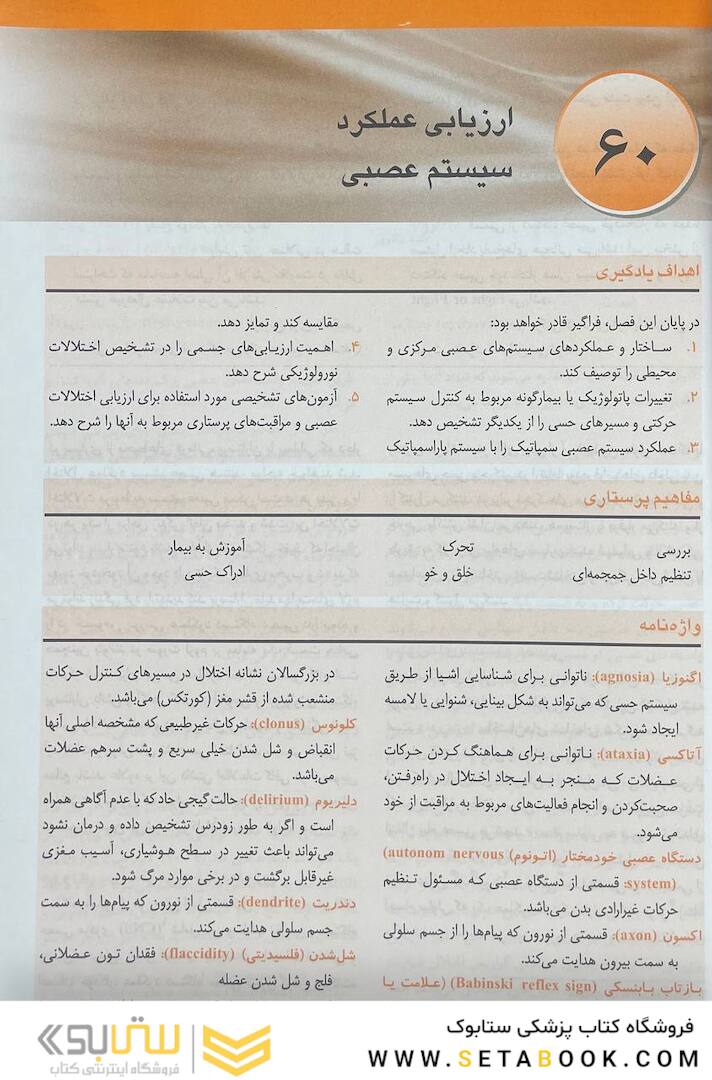 ۶۰
ارزیابی عملکرد
سیستم عصبی
اهداف یادگیری
در پایان این فصل، فراگیر قادر خواهد بود:
۱. ساختار و عملکردهای سیستم‌های عصبی مرکزی و
محیطی را توصیف کند.
۲. تغییرات پاتولوژیک یا بیمارگونه مربوط به کنترل سیستم
حرکتی و مسیرهای حسی را از یکدیگر تشخیص دهد.
۳. عملکرد سیستم عصبی سمپاتیک را با سیستم پاراسمپاتیک
مقایسه کند و تمایز دهد.
۴. اهمیت ارزیابی‌های جسمی را در تشخیص اختلالات
نورولوژیکی شرح دهد.
۵. آزمون‌های تشخیصی مورد استفاده برای ارزیابی اختلالات
عصبی و مراقبت‌های پرستاری مربوط به آنها را شرح دهد.
مفاهیم پرستاری
بررسی
تنظیم داخل جمجمه‌ای
تحرک
خلق و خو
آموزش به بیمار
ادراک حسی
واژه‌نامه
اگنوزیا (agnosia): ناتوانی برای شناسایی اشیا از طریق
سیستم حسی که می‌تواند به شکل بینایی، شنوایی یا لامسه
ایجاد شود.
آتاکسی (ataxia): ناتوانی برای هماهنگ کردن حرکات
عضلات که منجر به ایجاد اختلال در راه‌رفتن،
صحبت‌کردن و انجام فعالیت‌های مربوط به مراقبت از خود
می‌شود.
دستگاه عصبی خودمختار (اتونوم) (autonom nervous
system): قسمتی از دستگاه عصبی که مسئول تنظیم
حرکات غیرارادی بدن می‌باشد.
اکسون (axon): قسمتی از نورون که پیام‌ها را از جسم سلولی
به سمت بیرون هدایت می‌کند.
بازتاب بابنسکی (Babinski reflex sign) (علامت یا
در بزرگسالان نشانه اختلال در مسیرهای کنترل حرکات
منشعب شده از قشر مغز (کورتکس) می‌باشد.
کلونوس (clonus): حرکات غیرطبیعی که مشخصه اصلی آنها
انقباض و شل شدن خیلی سریع و پشت سرهم عضلات
می‌باشد.
دلیریوم (delirium): حالت گیجی حاد که با عدم آگاهی همراه
است و اگر به طور زودرس تشخیص داده و درمان نشود
می‌تواند باعث تغییر در سطح هوشیاری، آسیب مغزی
غیرقابل برگشت و در برخی موارد مرگ شود.
دندریت (dendrite): قسمتی از نورون که پیام‌ها را به سمت
جسم سلولی هدایت می‌کند.
شل‌شدن (فلسیدیتی) (flaccidity): فقدان تون عضلانی،
فلج و شل شدن عضله
فروشگاه کتاب پزشکی ستابوک
WWW.SETABOOK.COM
ستابوک
فروشگاه اینترنتی کتاب